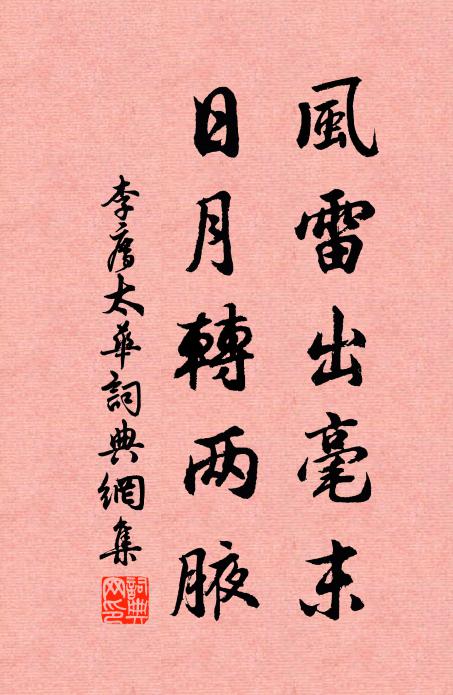 風雷出毫末
日月轉两腋
李廌太華詞典網集
詞典網印